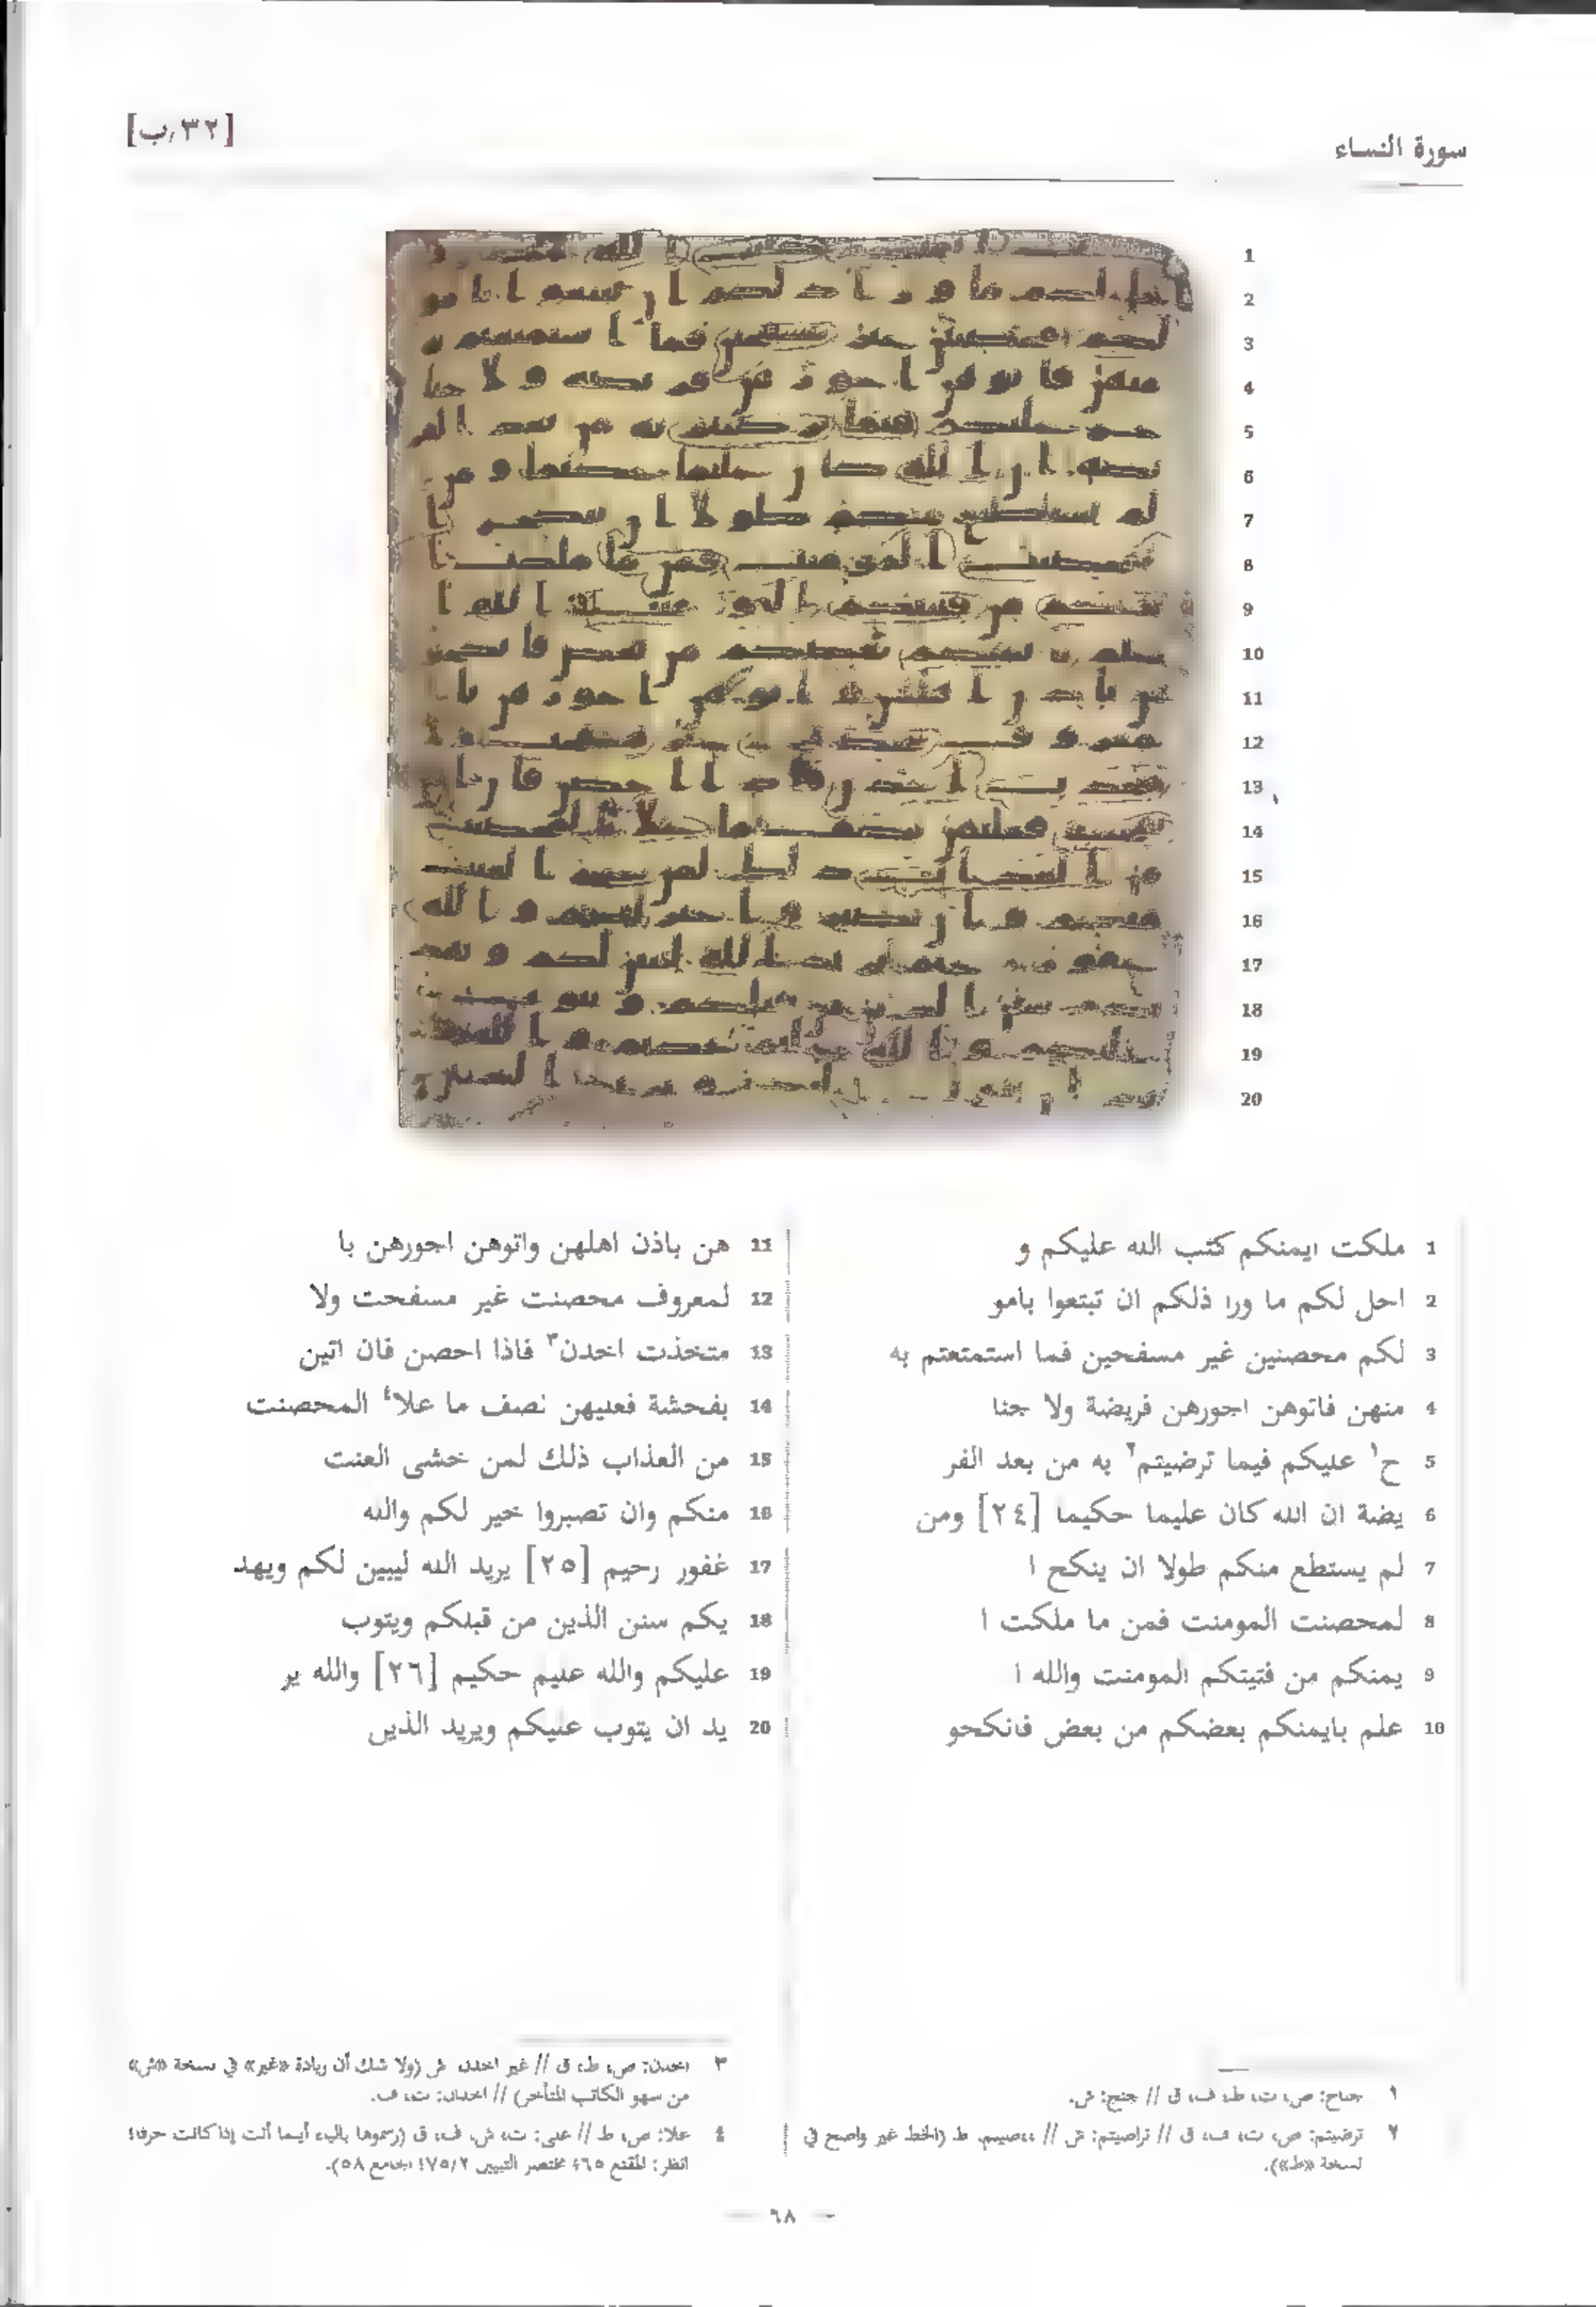 سورة النساء
[٣٢/ب]
1 ملكت ايمنكم كتب الله عليكم و
2 احل لكم ما ورا ذلكم ان تبتغوا بامو
3 لكم محصنين غير مسفحين فما استمتعتم به
4 منهن فاتوهن اجورهن فريضة ولا جنا
5 ح١ عليكم فيما ترضيتم٢ به من بعد الفر
6 يضة ان الله كان عليما حكيما [٢٤] ومن
7 لم يستطع منكم طولا ان ينكح ا
8 لمحصنت المومنت فمن ما ملكت ا
9 يمنكم من فتيتكم المومنت والله ا
10 علم بايمنكم بعضكم من بعض فانكحو
11 هن باذن اهلهن واتوهن اجورهن با
12 لمعروف محصنت غير مسفحت ولا
13 متخذت اخدن٣ فاذا احصن فان اتين
14 بفحشة فعليهن نصف ما علا٤ المحصنت
15 من العذاب ذلك لمن خشى العنت
16 منكم وان تصبروا خير لكم والله
17 غفور رحيم [٢٥] يريد الله ليبين لكم ويهد
18 يكم سنن الذين من قبلكم ويتوب
19 عليكم والله عليم حكيم [٢٦] والله ير
20 يد ان يتوب عليكم ويريد الذين
١ جناح: ص، ت، ط، ف، ق // جنح: ش.
٢ ترضيتم: ص، ت، ف، ق // تراضيتم: ش // ط (الخط غير واضح في
لنسخة «ط»).
٣ اخدن: ص، ط، ق // غير اخدن ش (ولا شك أن زيادة «غير» في نسخة «ش»
من سهو الكاتب المتأخر) // اخدان: ت، ف.
٤ علا: ص، ط // على: ت، ش، ف، ق (رسموها بالياء أينما أتت إذا كانت حرفا؛
انظر: المقنع ٦٥؛ مختصر التبيين ٧٥/٢؛ الجامع ٥٨).
— ٦٨ —